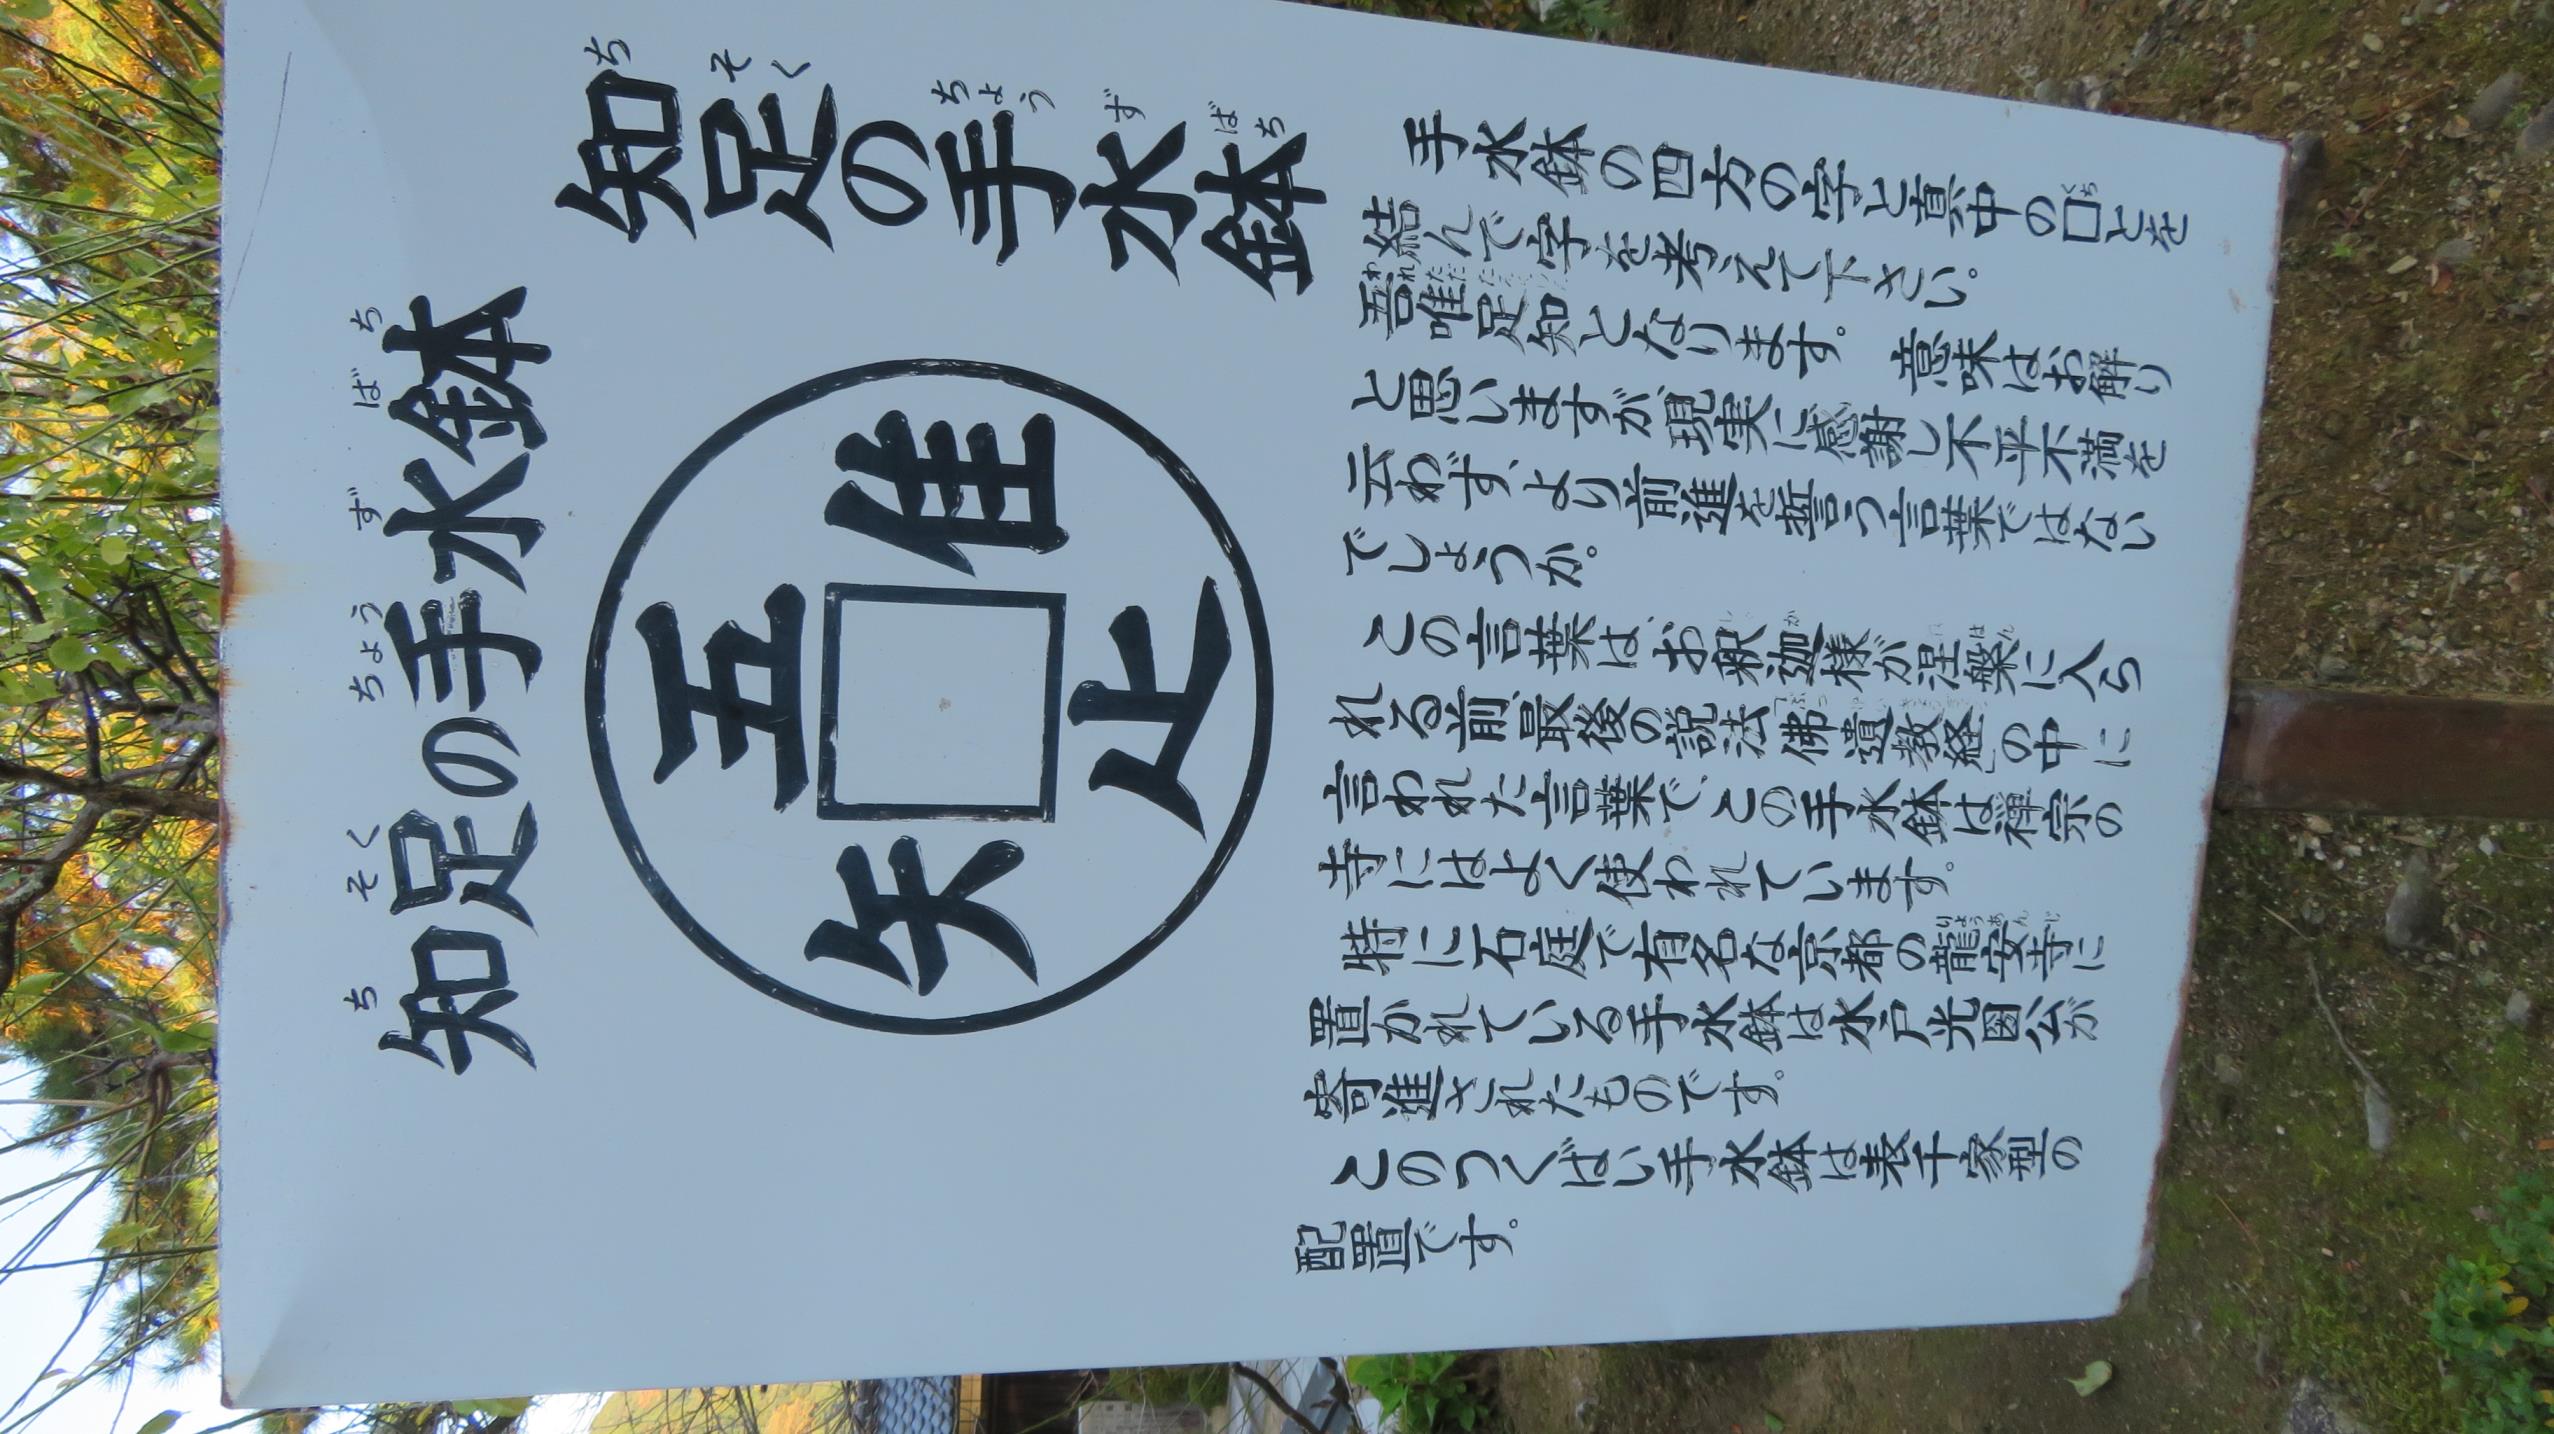 ち そく ちょう ず ばち
知足の手水鉢
ち そく ちょう ず ばち
知足の手水鉢
五
矢口隹
止
手水鉢の四方の字と真中の口とを
結んで字を考えて下さい。
吾唯足知となります。 意味はお解り
と思いますが現実に感謝し不平不満を
云わず、より前進を誓う言葉ではない
でしょうか。
この言葉は、お釈迦様が涅槃に入ら
れる前、最後の説法「佛遺教経」の中に
言われた言葉で、この手水鉢は禅宗の
寺にはよく使われています。
特に石庭で有名な京都の龍安寺に
置かれている手水鉢は水戸光圀公が
寄進されたものです。
このつくばい手水鉢は表千家型の
配置です。